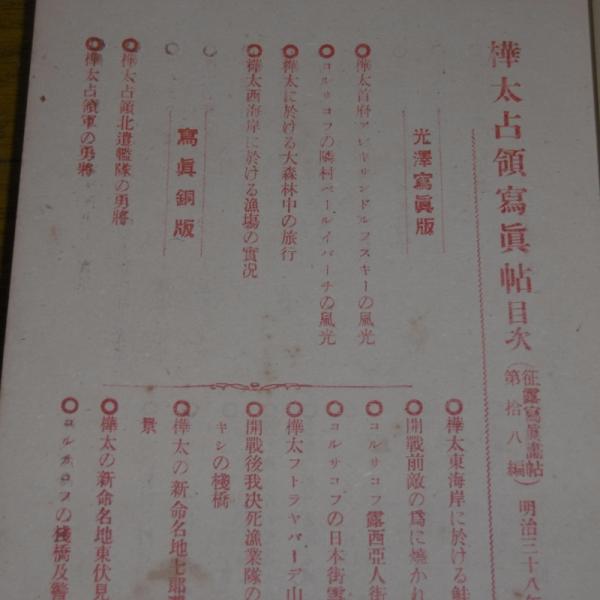 樺太占領寫眞帖目次 (征露寫眞畫帖第拾八編) 明治三十八年
光澤寫眞版
◎樺太首府アレキサンドルフスキーの風光
◎コルサコフの隣村ペールイパーチの風光
◎樺太に於ける大森林中の旅行
◎樺太西海岸に於ける漁場の實况
寫眞銅版
◎樺太占領北遣艦隊の勇將
◎樺太占領軍の勇將
◎樺太東海岸に於ける鮭
◎開戰前敵の爲に燒かれ
◎コルサコフ露西亞人街
◎コルサコフの日本街
◎樺太フトラヤパーデ山
◎開戰後我決死漁業隊の
キシの棧橋
◎樺太の新命名地七郎
景
◎樺太の新命名地東伏見
◎コルサコフの棧橋及